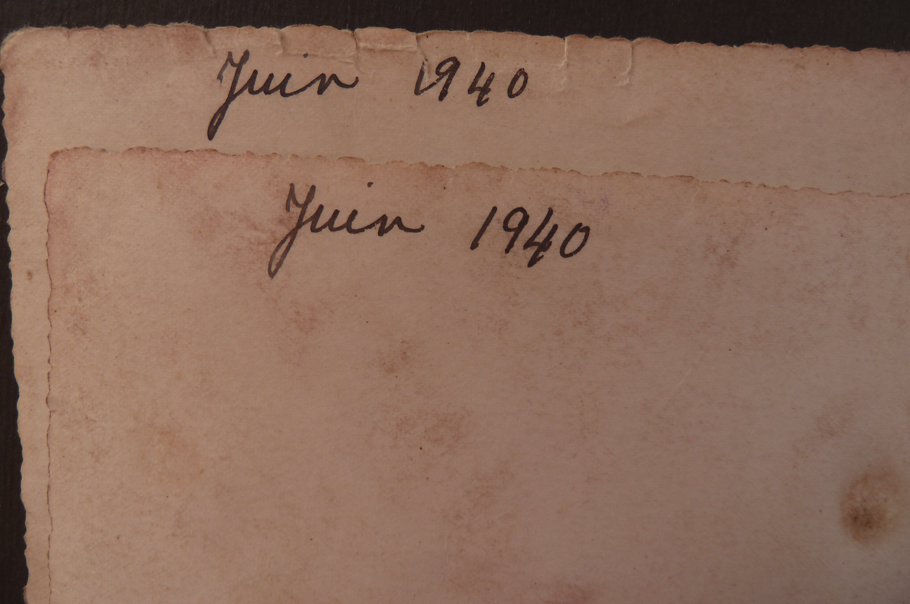 Juin 1940
Juin 1940